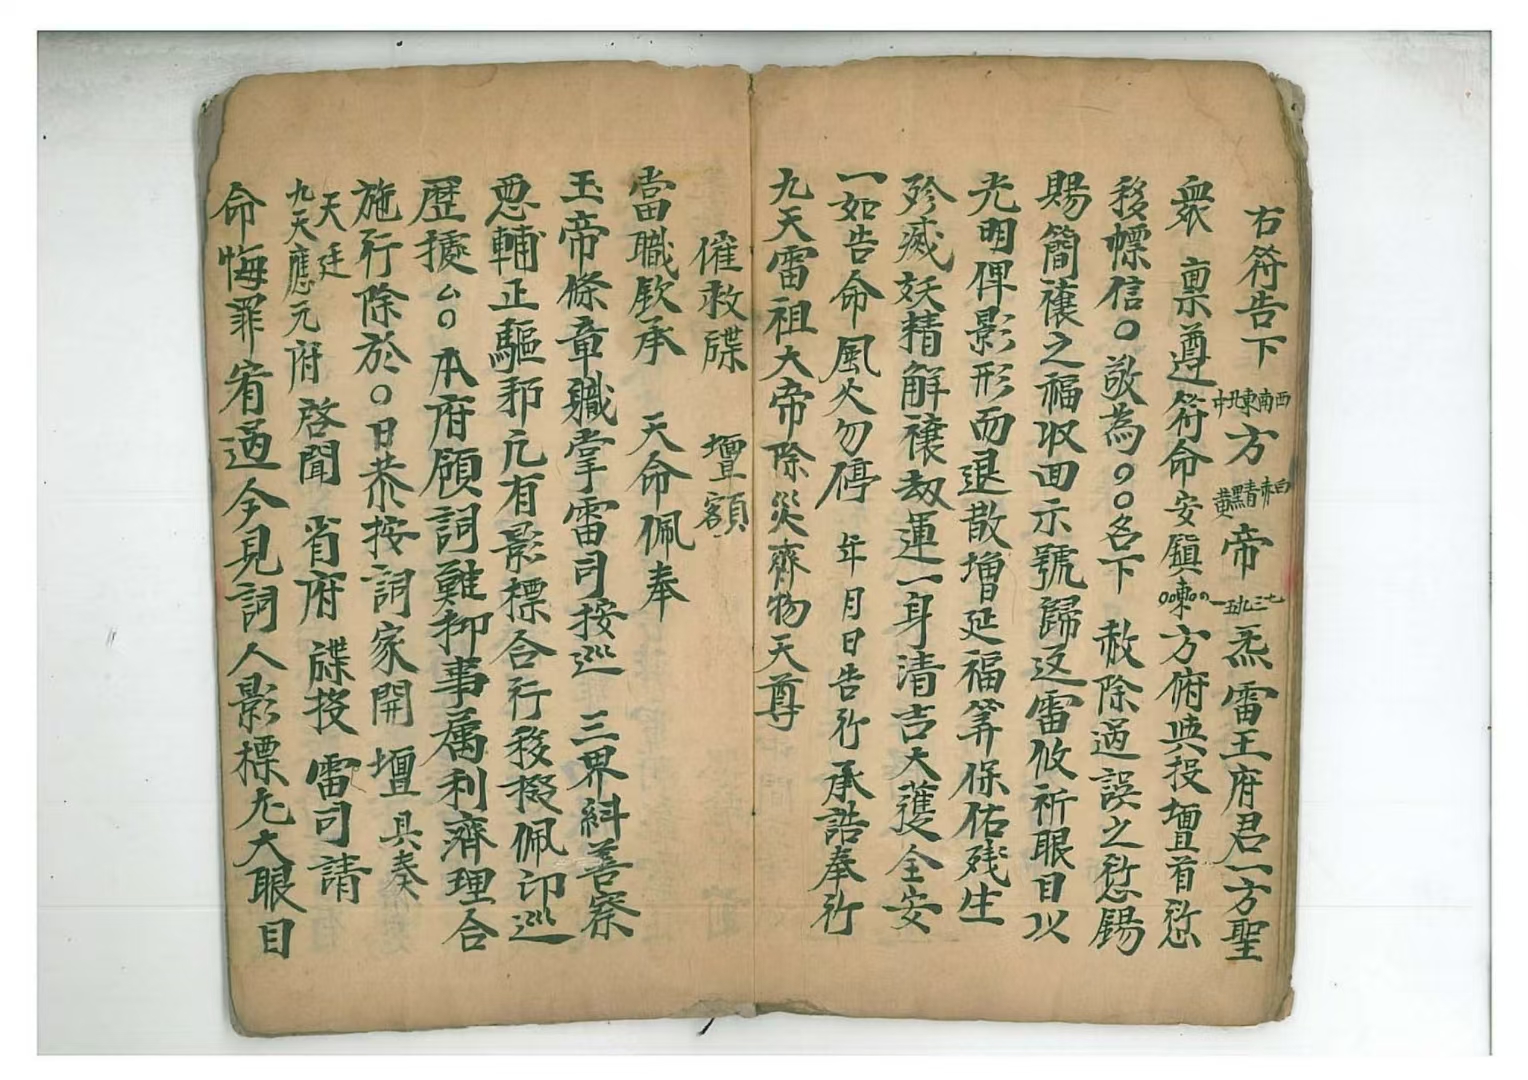 右符告下西南東北中方白赤青黑黃帝七三九五一炁雷王府君一方聖
衆 稟遵符命安鎮 方俯與投壇首愆
移幖信〇敬為〇〇名下 赦除過誤之愆錫
賜簡禳之福収回示號歸返雷攸祈眼目以
光明俾影形而退散增延福筭保佑残生
殄滅妖精解禳刼運一身清吉大護全安
一如告命風火勿停 年月日告行承誥奉行
九天雷祖大帝除災齊物天尊
催救牒 壇額
當職欽承 天命佩奉
玉帝條章職掌雷司按巡 三界糾善察
惡輔正驅邪亢有影標合行移檄佩印巡
歷據厶〇本府顧詞難抑事屬利濟理合
施行除於〇日恭按詞家開壇具奏
天廷
九天應元府 啓聞 省府 牒投 雷司請
命悔罪宥過今見詞人影標尢大眼目